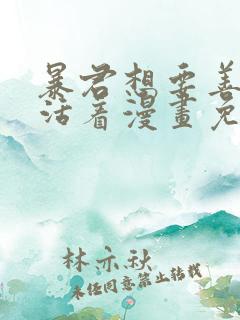 暴君想要善
活着漫畫免
林亦秋
未经同意禁止转载